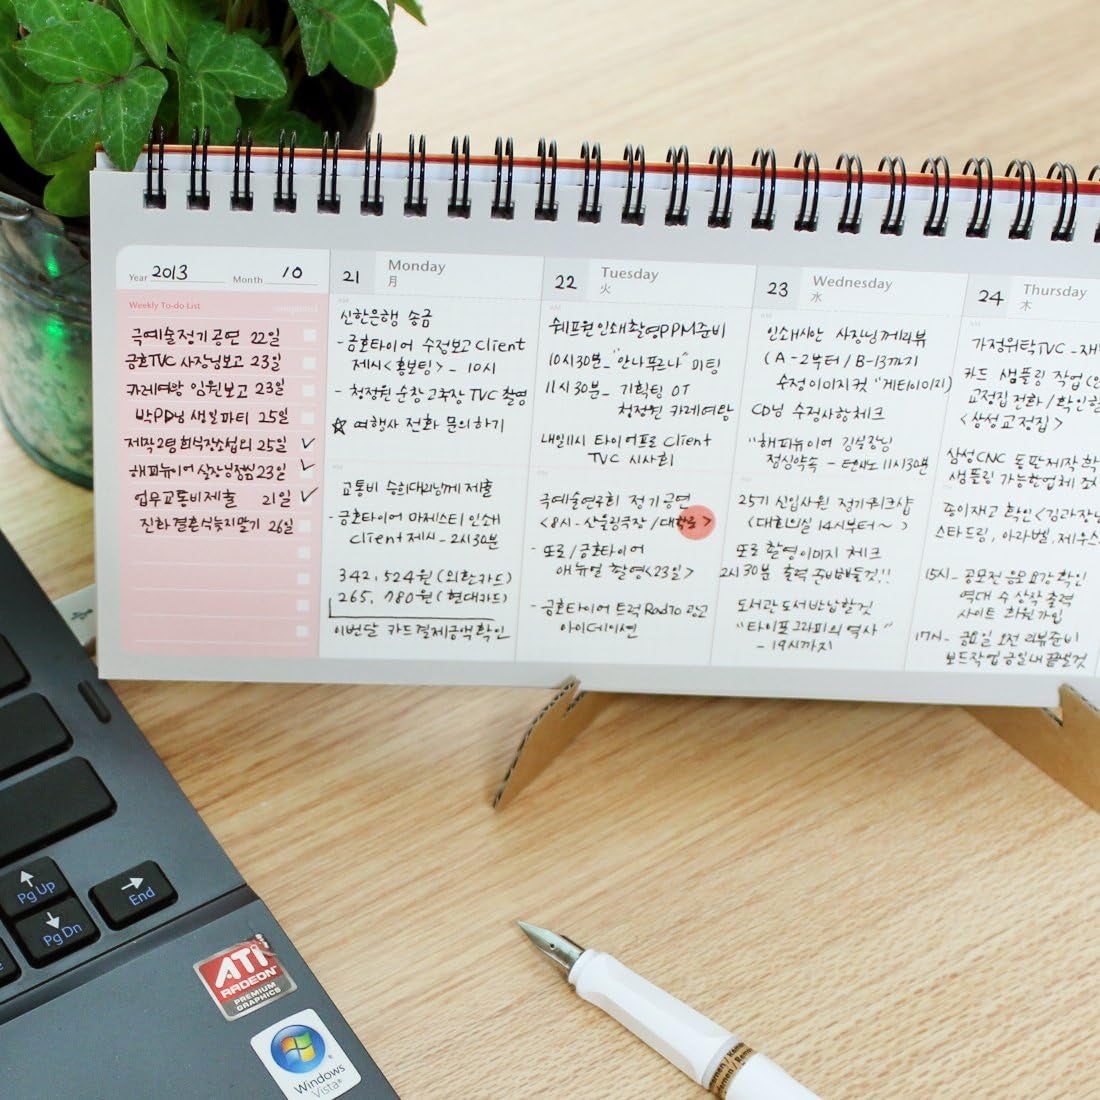 Year 2013 Month 10
Weekly To-do-List
극예술정기공연 22일
금호TVC 사장님보고 23일
카레여왕 임원보고 23일
박PD님 생일파티 25일
제작2팀 회식장소섭외 25일
해피뉴이어 실장님점심 23일
업무교통비제출 21일
진화결혼식늦지말기 26일
21 Monday
月
신한은행 송금
- 금호타이어 수정보고 Client
제시<홍보팀> - 10시
- 청정원 순창고추장 TVC 촬영
☆ 여행사 전화 문의하기
교통비 수희대리님께 제출
- 금호타이어 마제스티 인쇄
Client 제시 - 2시30분
342,524원 (외환카드)
265,780원 (현대카드)
이번달 카드결제금액확인
22 Tuesday
火
쉐프원인쇄촬영PPM준비
10시30분_"안나푸르나" 미팅
11시30분_ 기획팀 OT
청정원 카레여왕
내일11시 타이어프로 Client
TVC 시사회
극예술연구회 정기공연
<8시 - 산울림극장/대학로>
- 또로/금호타이어
애뉴얼 촬영<23일>
- 금호타이어 트럭 Radio 광고
아이데이션
23 Wednesday
水
인쇄시안 사장님께리뷰
(A-2부터/B-13까지
수정이미지컷 "게티이미지)
CD님 수정사항체크
"해피뉴이어 김부장님
점심약속 - 11시30분
25기 신입사원 정기워크샵
(대회의실 14시부터~)
또로 촬영이미지 체크
2시30분 출력 준비해둘것!!
도서관도서반납할것
"타이포그라피의 역사"
- 19시까지
24 Thursday
木
가정위탁TVC -
카드 샘플링 작업
교정집전화/확인
<삼성교정집>
삼성CNC 동판제작
샘플링 가능한업체
종이재고 확인<김과장님
스타드림, 아라벨,
15시_ 공모전 응모요강확인
역대 수상작 출력
사이트 회원가입
17시_ 금요일 오전 리뷰준비
보드작업 금일내 끝낼것
Pg Up
Pg Dn
End
ATI
RADEON
PREMIUM
GRAPHICS
Windows
Vista